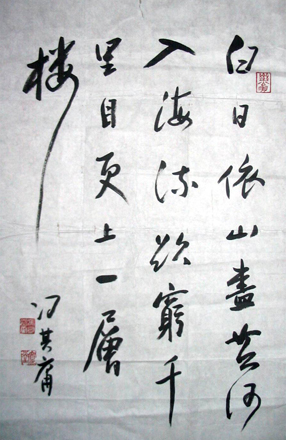 白日依山盡黄河
入海流欲窮千
里目更上一層
楼
冯其庸